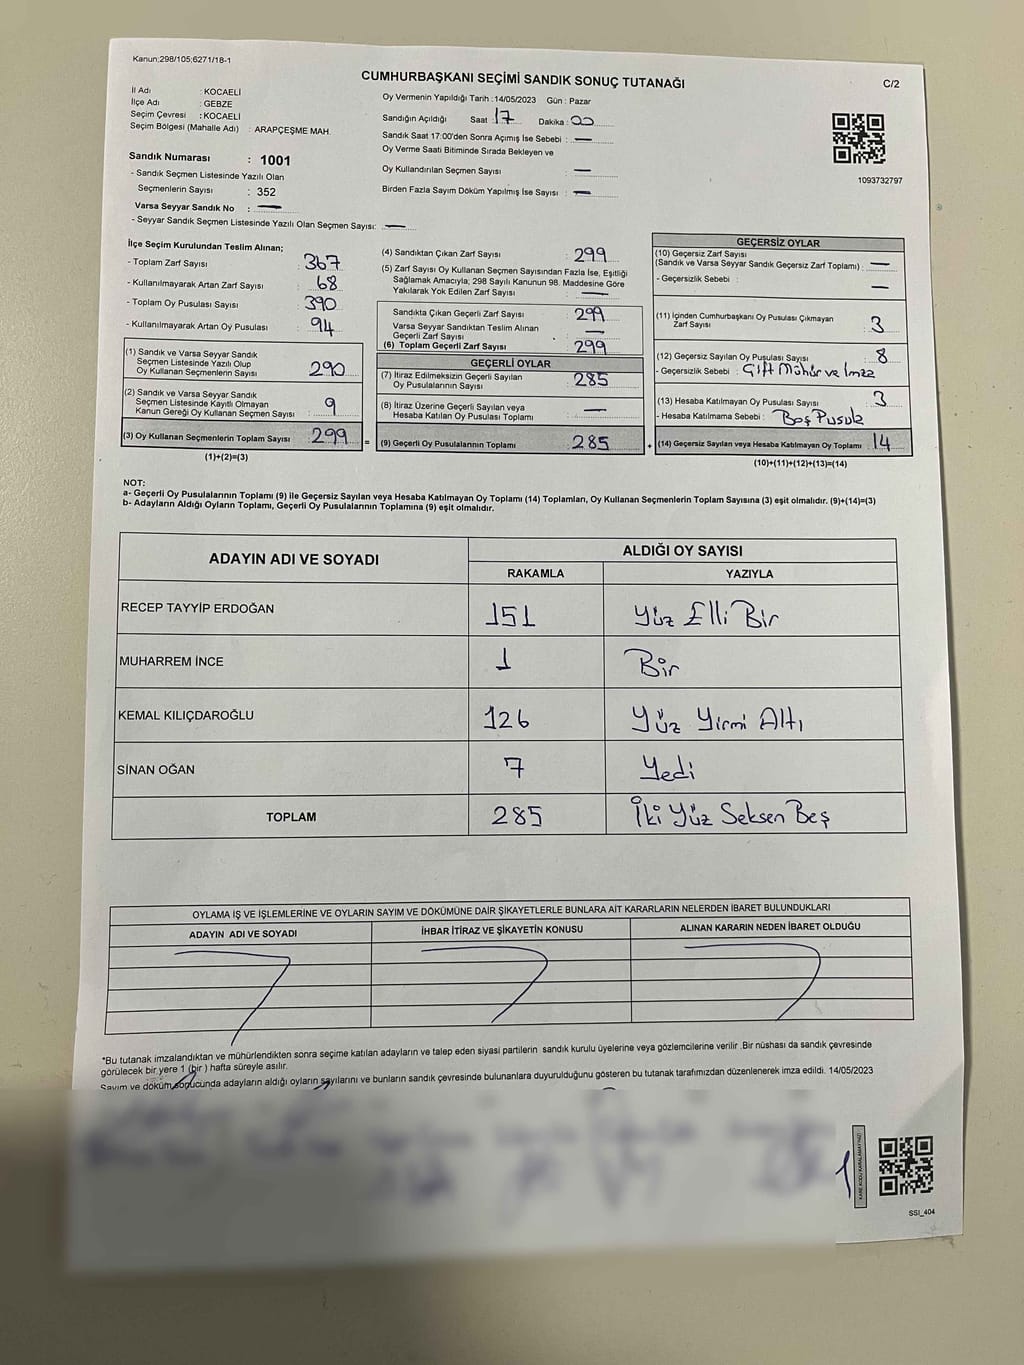 Kanun;298/105;6271/18-1
CUMHURBAŞKANI SEÇİMİ SANDIK SONUÇ TUTANAĞI
C/2
İl Adı : KOCAELİ
İlçe Adı : GEBZE
Seçim Çevresi : KOCAELİ
Seçim Bölgesi (Mahalle Adı) : ARAPÇEŞME MAH.
Sandık Numarası : 1001
- Sandık Seçmen Listesinde Yazılı Olan
Seçmenlerin Sayısı : 352
Varsa Seyyar Sandık No : —
- Seyyar Sandık Seçmen Listesinde Yazılı Olan Seçmen Sayısı: —
Oy Vermenin Yapıldığı Tarih : 14/05/2023 Gün : Pazar
Sandığın Açıldığı Saat : 17 Dakika : 00
Sandık Saat 17:00'den Sonra Açımış İse Sebebi : —
Oy Verme Saati Bitiminde Sırada Bekleyen ve
Oy Kullandırılan Seçmen Sayısı : —
Birden Fazla Sayım Döküm Yapılmış İse Sayısı : —
1093732797
İlçe Seçim Kurulundan Teslim Alınan;
- Toplam Zarf Sayısı : 367
- Kullanılmayarak Artan Zarf Sayısı : 68
- Toplam Oy Pusulası Sayısı : 390
- Kullanılmayarak Artan Oy Pusulası : 94
(1) Sandık ve Varsa Seyyar Sandık
Seçmen Listesinde Yazılı Olup
Oy Kullanan Seçmenlerin Sayısı : 290
(2) Sandık ve Varsa Seyyar Sandık
Seçmen Listesinde Kayıtlı Olmayan
Kanun Gereği Oy Kullanan Seçmen Sayısı : 9
(3) Oy Kullanan Seçmenlerin Toplam Sayısı : 299 =
(1)+(2)=(3)
(4) Sandıktan Çıkan Zarf Sayısı : 299
(5) Zarf Sayısı Oy Kullanan Seçmen Sayısından Fazla İse, Eşitliği
Sağlamak Amacıyla; 298 Sayılı Kanunun 98. Maddesine Göre
Yakılarak Yok Edilen Zarf Sayısı : —
Sandıkta Çıkan Geçerli Zarf Sayısı : 299
Varsa Seyyar Sandıktan Teslim Alınan
Geçerli Zarf Sayısı : —
(6) Toplam Geçerli Zarf Sayısı : 299
GEÇERLİ OYLAR
(7) İtiraz Edilmeksizin Geçerli Sayılan
Oy Pusulalarının Sayısı : 285
(8) İtiraz Üzerine Geçerli Sayılan veya
Hesaba Katılan Oy Pusulası Toplamı : —
(9) Geçerli Oy Pusulalarının Toplamı : 285 +
GEÇERSİZ OYLAR
(10) Geçersiz Zarf Sayısı
(Sandık ve Varsa Seyyar Sandık Geçersiz Zarf Toplamı) : —
- Geçersizlik Sebebi : —
(11) İçinden Cumhurbaşkanı Oy Pusulası Çıkmayan
Zarf Sayısı : 3
(12) Geçersiz Sayılan Oy Pusulası Sayısı : 8
- Geçersizlik Sebebi : Çift Mühür ve İmza
(13) Hesaba Katılmayan Oy Pusulası Sayısı : 3
- Hesaba Katılmama Sebebi : Boş Pusula
(14) Geçersiz Sayılan veya Hesaba Katılmayan Oy Toplamı : 14
(10)+(11)+(12)+(13)=(14)
NOT:
a- Geçerli Oy Pusulalarının Toplamı (9) ile Geçersiz Sayılan veya Hesaba Katılmayan Oy Toplamı (14) Toplamları, Oy Kullanan Seçmenlerin Toplam Sayısına (3) eşit olmalıdır. (9)+(14)=(3)
b- Adayların Aldığı Oyların Toplamı, Geçerli Oy Pusulalarının Toplamına (9) eşit olmalıdır.
ADAYIN ADI VE SOYADI
ALDIĞI OY SAYISI
RAKAMLA YAZIYLA
RECEP TAYYİP ERDOĞAN 151 Yüz Elli Bir
MUHARREM İNCE 1 Bir
KEMAL KILIÇDAROĞLU 126 Yüz Yirmi Altı
SİNAN OĞAN 7 Yedi
TOPLAM 285 İki Yüz Seksen Beş
OYLAMA İŞ VE İŞLEMLERİNE VE OYLARIN SAYIM VE DÖKÜMÜNE DAİR ŞİKAYETLERLE BUNLARA AİT KARARLARIN NELERDEN İBARET BULUNDUKLARI
ADAYIN ADI VE SOYADI İHBAR İTİRAZ VE ŞİKAYETİN KONUSU ALINAN KARARIN NEDEN İBARET OLDUĞU
*Bu tutanak imzalandıktan ve mühürlendikten sonra seçime katılan adayların ve talep eden siyasi partilerin sandık kurulu üyelerine veya gözlemcilerine verilir .Bir nüshası da sandık çevresinde
görülecek bir yere 1 (bir ) hafta süreyle asılır.
Sayım ve döküm sonucunda adayların aldığı oyların sayılarını ve bunların sandık çevresinde bulunanlara duyurulduğunu gösteren bu tutanak tarafımızdan düzenlenerek imza edildi. 14/05/2023
KARE KODU KARALAMAYINIZ!
SSI_404